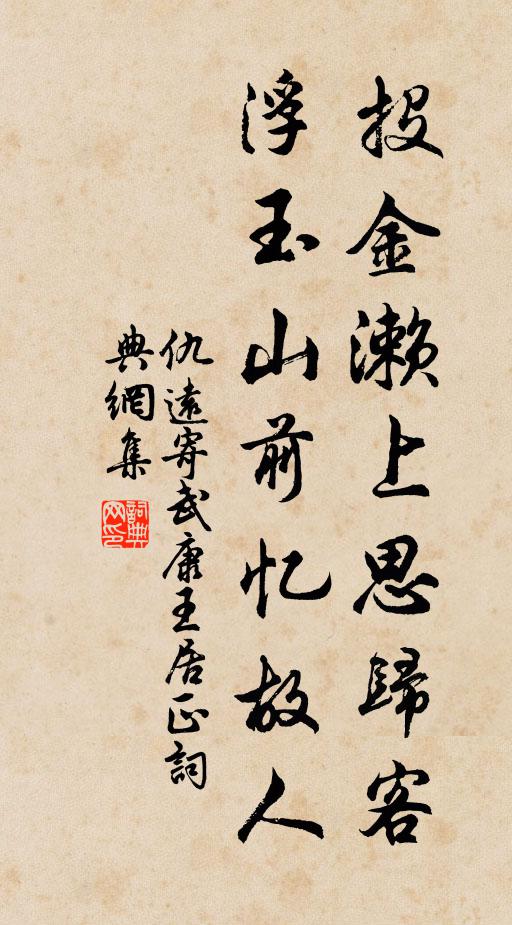 投金濑上思歸客
浮玉山前忆故人
仇遠寄武康王居正詞
典網集
詞典
网印